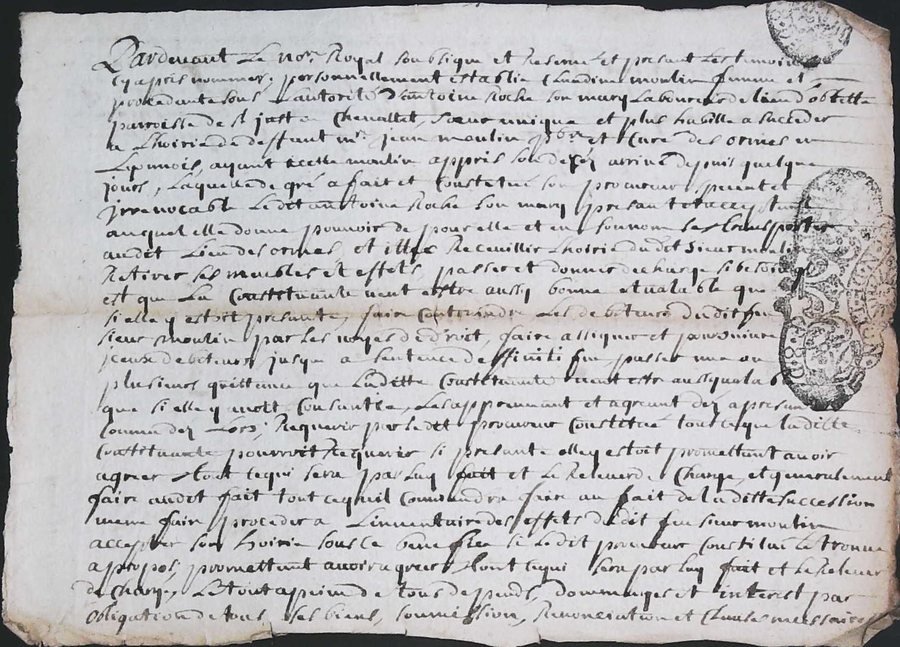 Pardevant Le no.re Royal soubsigné et Reservé et presant Les temoins
cy apres nommes, personnellement establie Claudine moulin femme et
procedante sous L'autorité d'antoine Roche son mary Laboureur de lieu d'
parroisse de st just en Chevallet, soeur unique et plus habille a succeder
a Lhoirie de deffunt m.re jean moulin et Curé des ormes en
Lyonnois, ayant Laditte moulin appris son dexces arrivé depuis quelque
jours, Laquelle de gré a fait et Constitué son procureur special et
jrrevocable Ledit antoine Roche son mary presant et acceptant
auquel elle donne pouvoir de pour elle et en son nom se transporter
audit Lieu des ormes, et illec Recueillir Lhoirie dudit sieur moulin
Retirer ses meubles et effets, passer et donner decharge si besoin
est que La Constituante veut estre aussy bonne et valable que
si elle y estoit presante, faire Contraindre Les debiteurs dudit feu
sieur moulin par Les voyes de droit, faire assigner et poursuivre
jceux debiteurs jusque a sentence deffinitifve passer une ou
plusieurs quittence que Laditte Constituante veut estre aussy valable
que si elle y avoit Consantie, Les approuvant et agreant dez apresant
Comme dez Lors, Requerir par Ledit procureur Constitué tout ce que laditte
Constituante pourroit Requerir si presante elle y estoit promettant avoir
agreer tout ce qui sera par Luy fait et Le Relever de Charge, et generalement
faire audit fait tout ce quil Conviendra faire au fait de laditte succession
meme faire proceder a Linventaire des effets dudit feu sieur moulin
accepter son hoirie sous Le benefice si Ledit procureur Constitué Le trouve
apropos, promettant avoir agreer tout ce qui sera par Luy fait et Le Relever
de Charge, Le tout a peine de tous depends, dommages et interest par
obligation de tous ses biens, soumission, Renonciation et Clauses necessaires